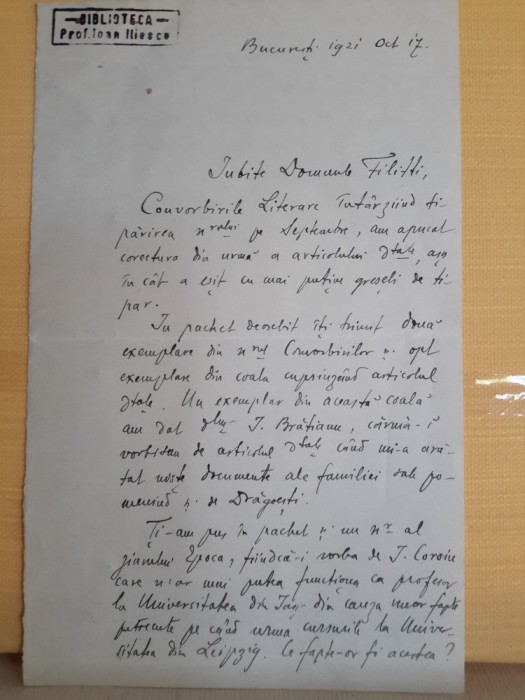 BIBLIOTECA
Prof. Ioan Iliescu
București 1921 Oct 17.
Iubite Domnule Filitti,
Convorbirile Literare întârziind ti-
părirea nrului pe Septembre, am apucat
corectura din urmă a articolului dtale, așa
în cât a eșit cu mai puține greșeli de ti-
par.
In pachet deosebit îți trimit două
exemplare din nrul Convorbirilor și opt
exemplare din coala cuprinzând articolul
dtale. Un exemplar din această coală
am dat dlui I. Brătianu, cărma-i
vorbisem de articolul dtale când mi-a ară-
tat niște documente ale familiei sale po-
menind și de Drăgoești.
Ți-am pus în pachet și un nr al
ziarului Epoca, fiindcă-i vorba de I. Coroiu
care n'ar mai putea funcționa ca profesor
la Universitatea din Iași din cauza unor fapte
petrecute pe când urma cursurile la Univer-
sitatea din Leipzig. Ce fapte-or fi acestea?